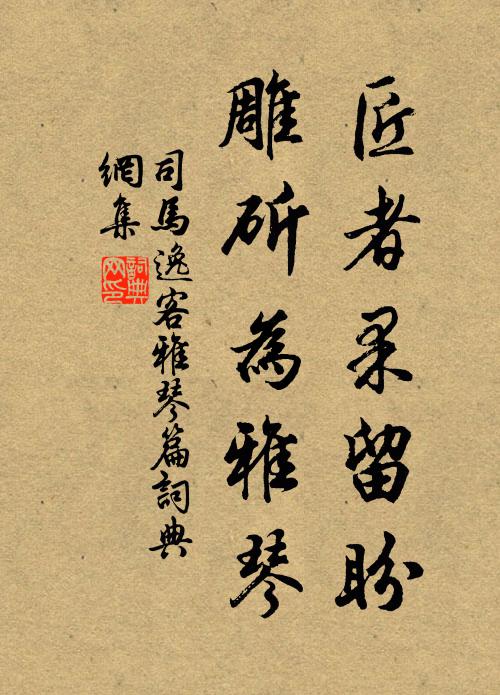 匠者果留盼
雕斫為雅琴
司馬逸客雅琴篇詞典
網集
詞典網印